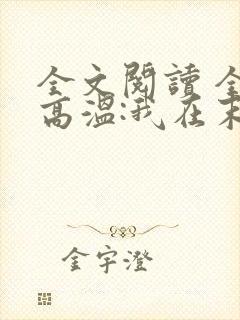 全文閱讀 全
高溫:我在末
金宇澄